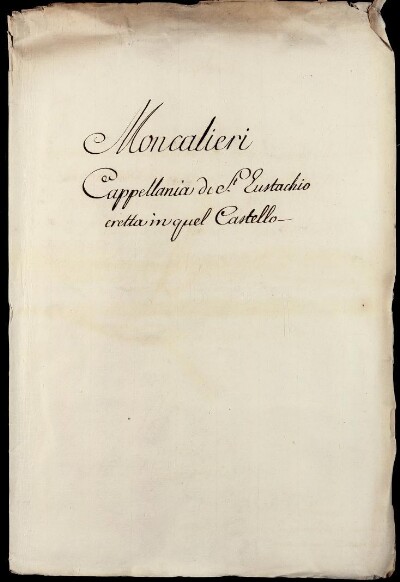 Moncalieri
Cappellania di S.t Eustachio
eretta in quel Castello